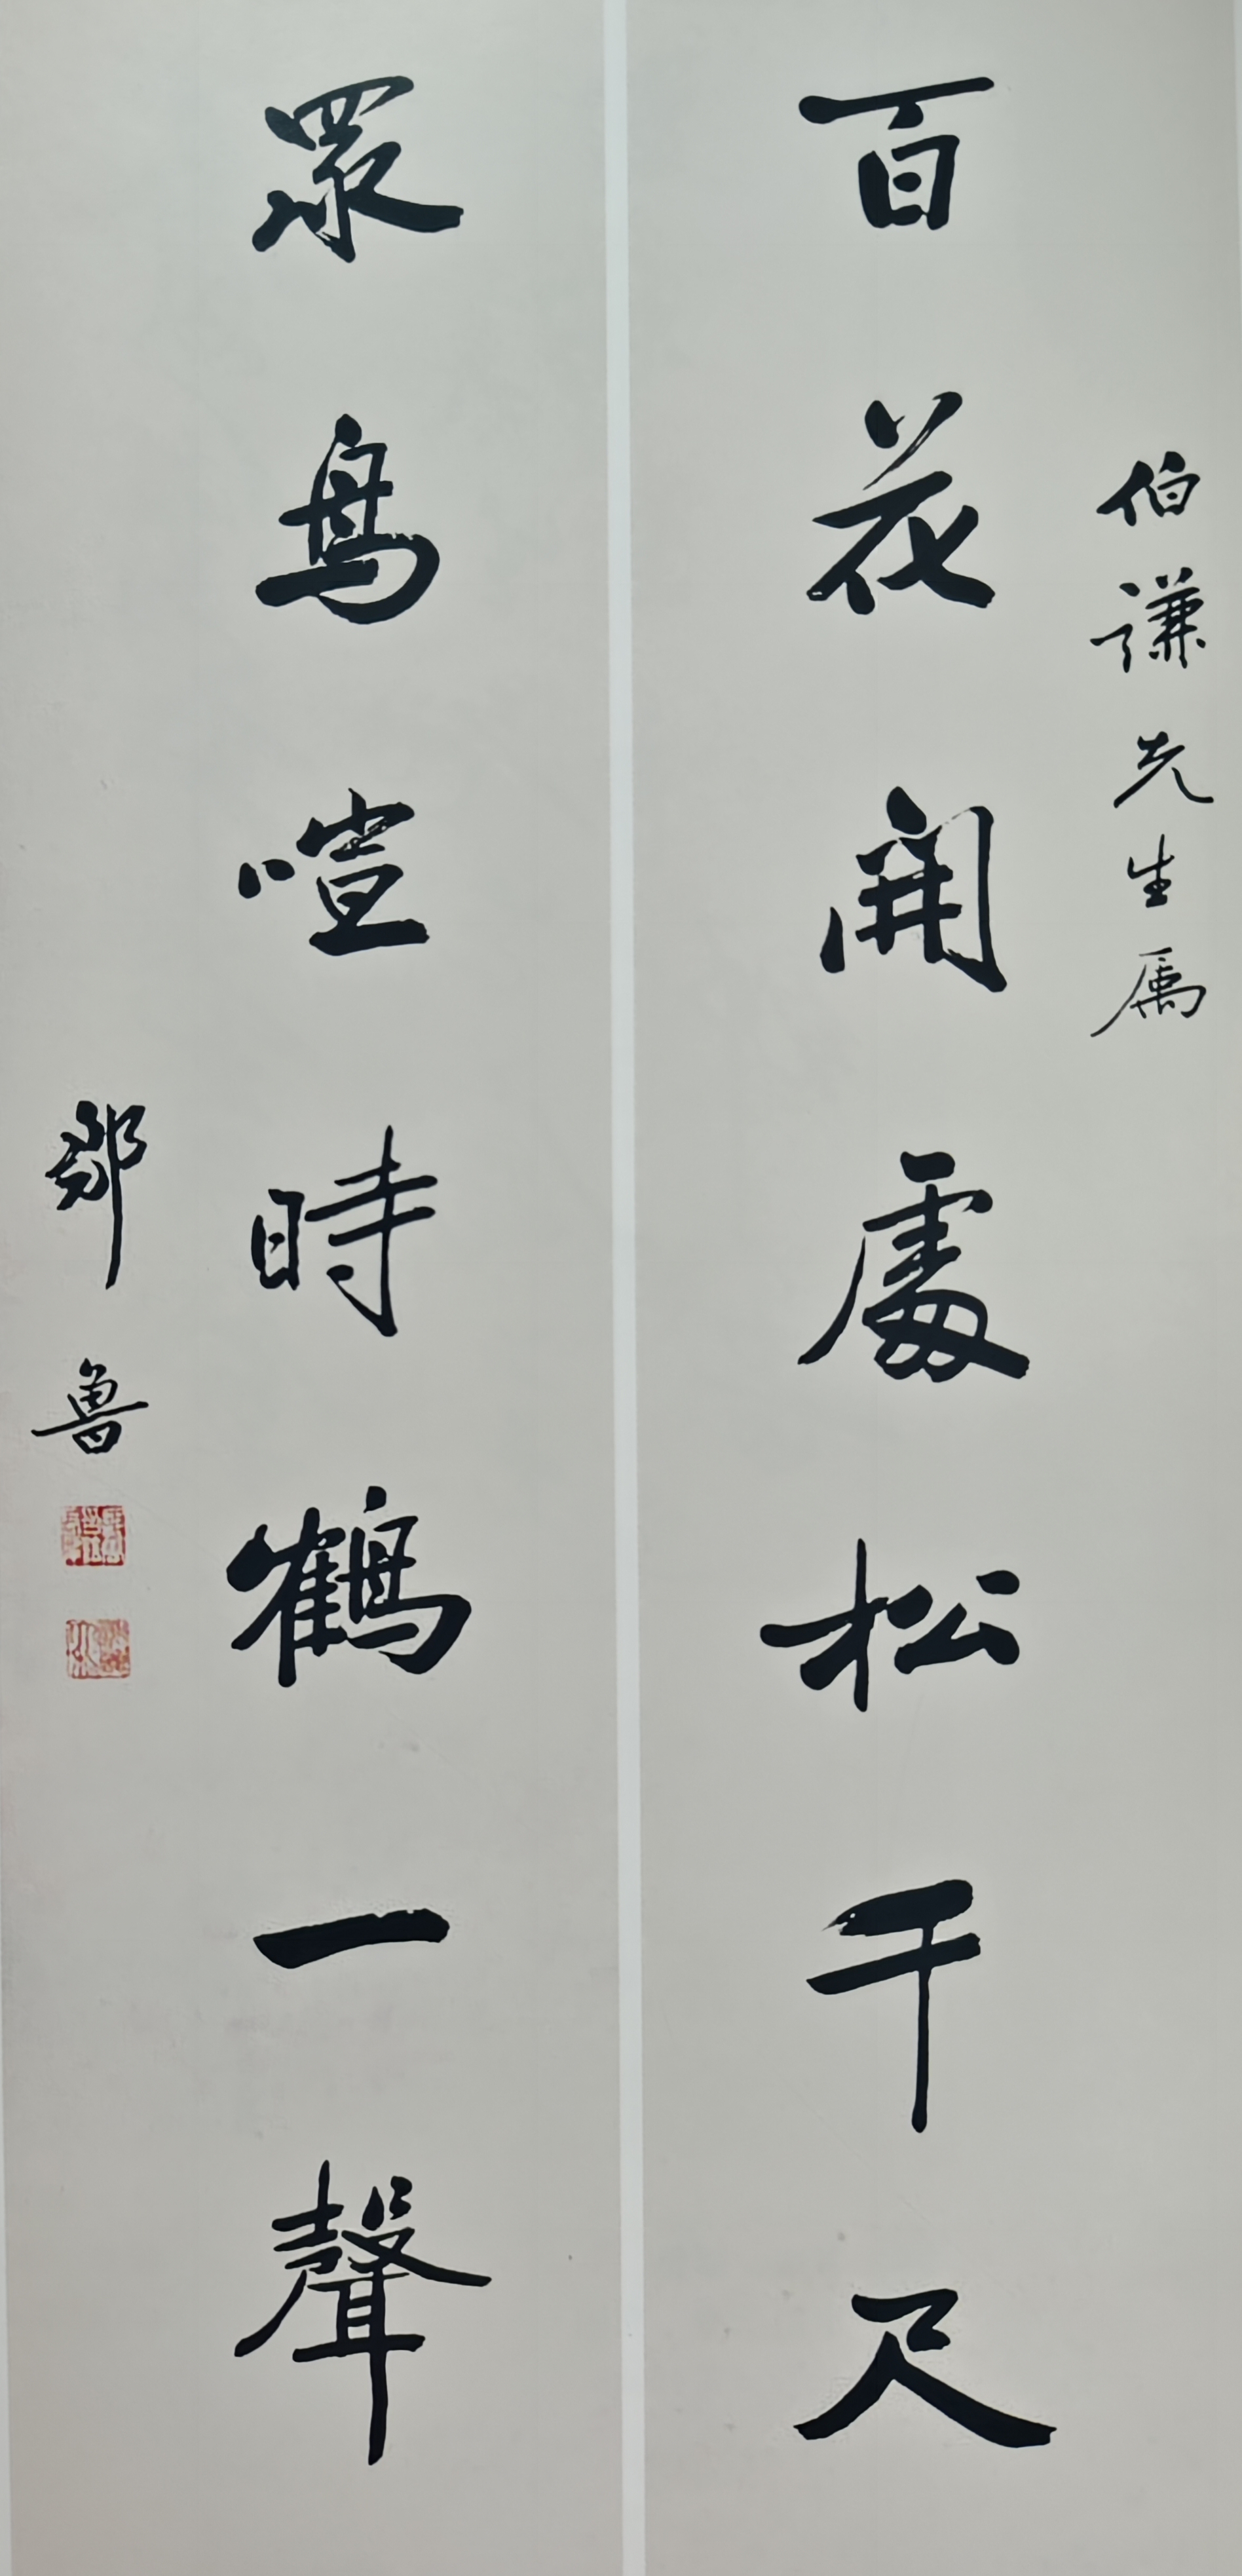 伯謙先生属
百花開處松千尺
眾鳥喧時鶴一聲
鄒魯